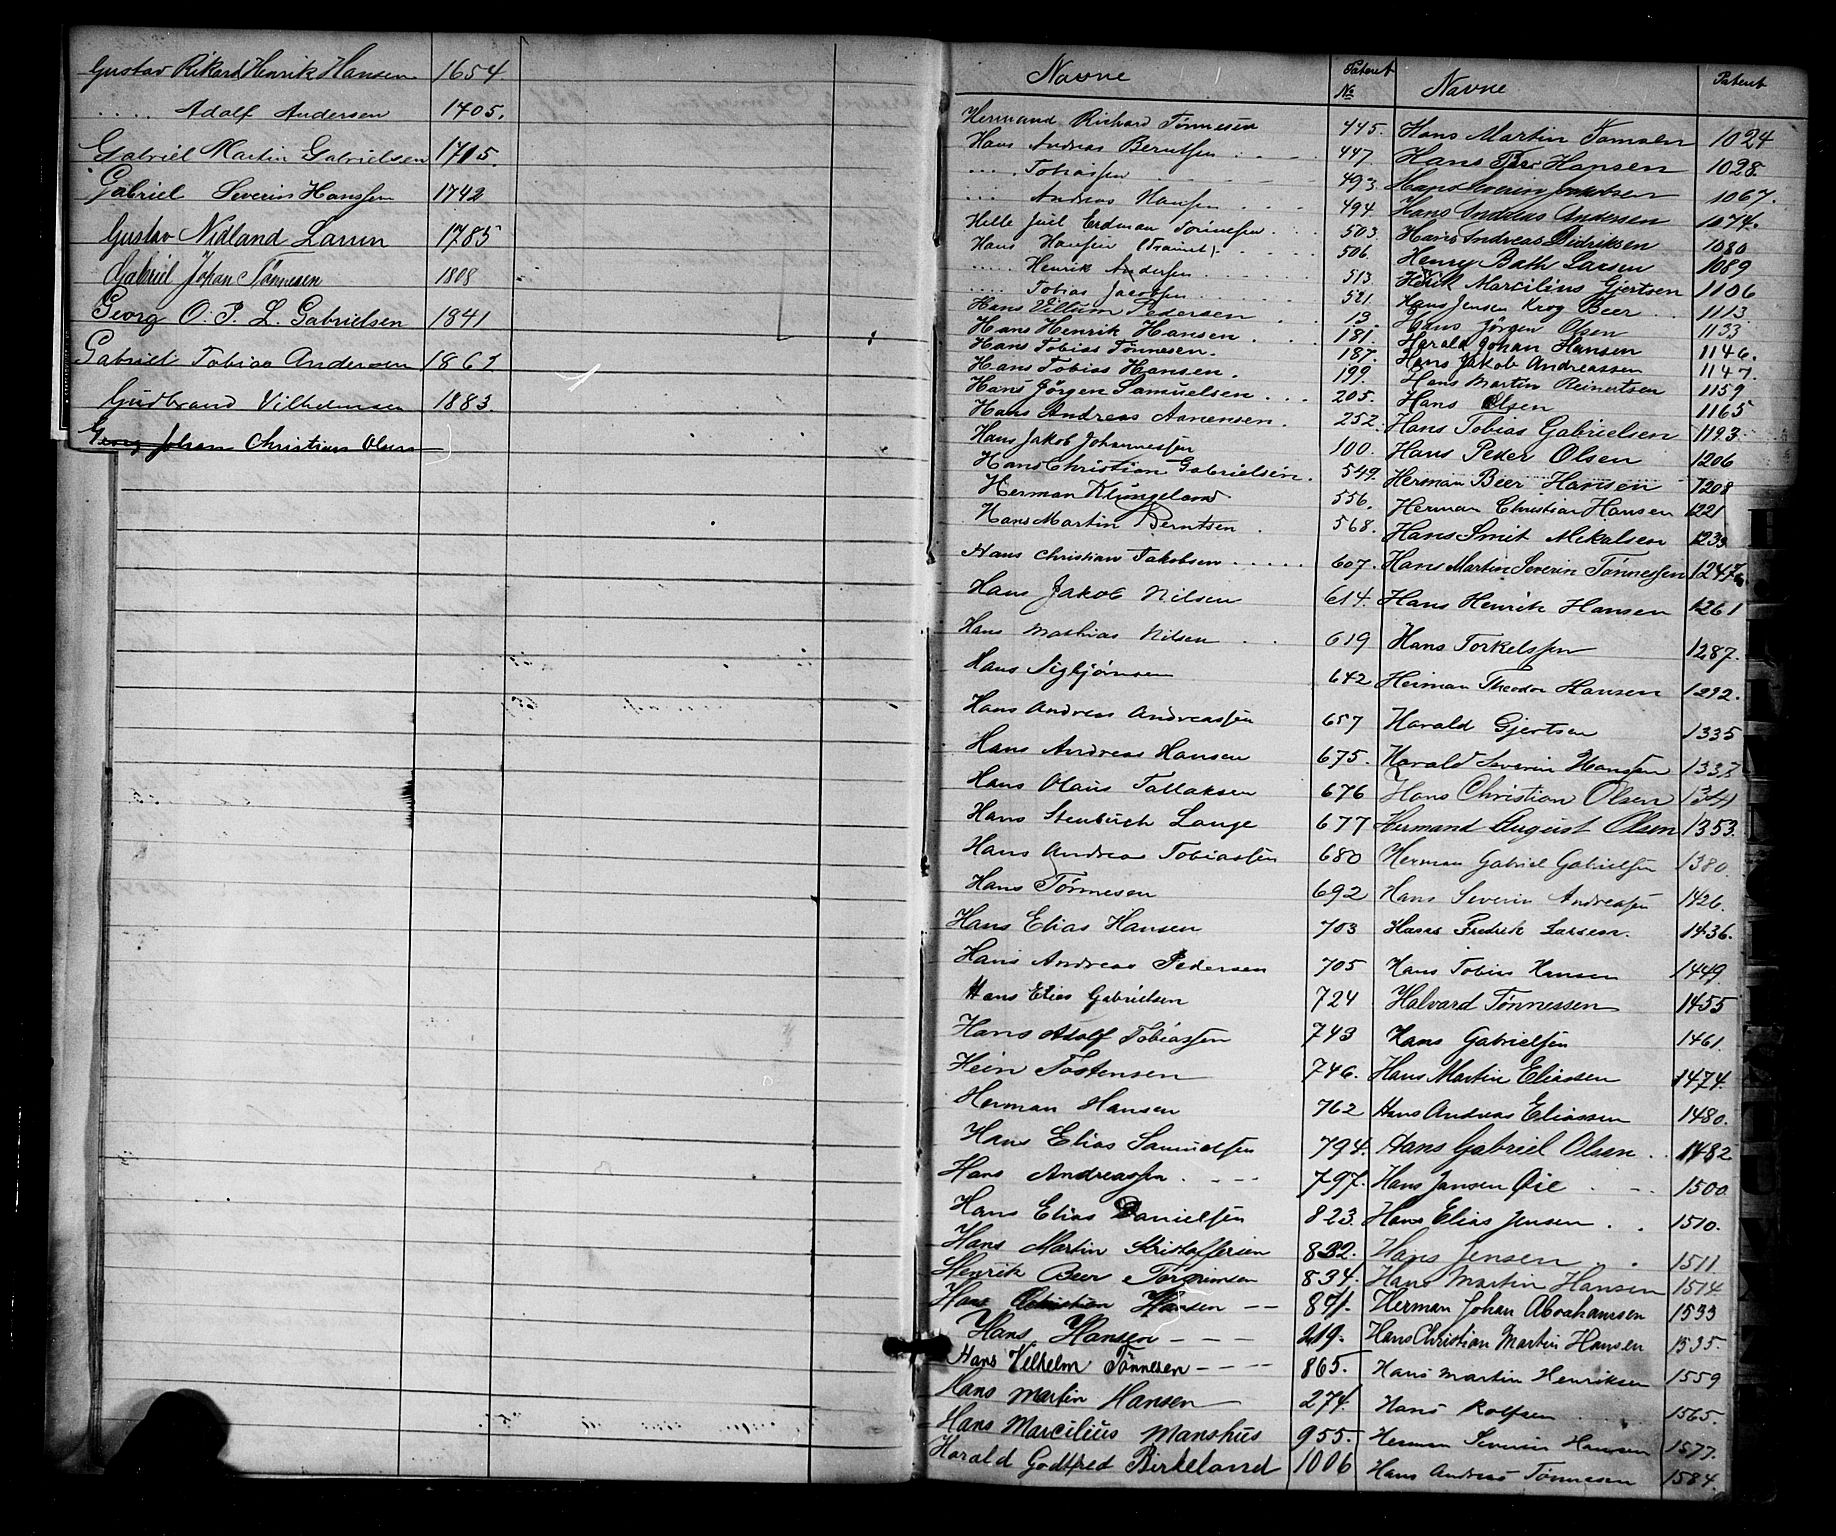 Gustav Rikard Henrik Hansen 1654
.... Adolf Andersen 1705.
Gabriel Martin Gabrielsen 1715.
Gabriel Severin Hanssen 1742
Gustav Nidland Larsen 1785
Gabriel Johan Tönnesen 1808
Georg O. P. L. Gabrielsen 1841
Gabriel Tobias Andersen 1867
Gudbrand Vilhelmsen 1883.
Georg Johan Christian Olsen
Navne Patent No
Hermand Richard Tønnesen 445.
Hans Andreas Berntsen 447.
.... Tobiassen 493.
.... Andreas Hansen 494.
Helle Juel Erdman Tönnesen 503.
Hans Hansen (Tromet) 506.
.... Henrik Andersen 513.
.... Tobias Jacobsen 521.
Hans Villum Pedersen 13
Hans Henrik Hansen 181.
Hans Tobias Tønnesen. 187.
Hans Tobias Hansen. 199.
Hans Jörgen Samuelsen 205.
Hans Andreas Aanensen. 252.
Hans Jakob Johannessen 100.
Hans Christian Gabrielsen. 549.
Herman Klungeland 556.
Hans Martin Berntsen 568.
Hans Christian Jakobsen 607.
Hans Jakob Nilsen 614.
Hans Mathias Nilsen 619
Hans Sigbjørnsen 642
Hans Andreas Andreassen 657
Hans Andreas Hansen 675.
Hans Olaus Tallaksen 676
Hans Stenbuch Lange 677
Hans Andreas Tobiassen 680
Hans Tönnesen 692
Hans Elias Hansen 703
Hans Andreas Pedersen 705
Hans Elias Gabrielsen 724
Hans Adolf Tobiassen 743
Hein Tostensen 746.
Herman Hansen 762
Hans Elias Samuelsen 794.
Hans Andreassen 797.
Hans Elias Danielsen 823.
Hans Martin Kristoffersen 832.
Henrik Beer Torgrimsen 834.
Hans Christian Hansen 841.
Hans Hansen 219.
Hans Vilhelm Tönnesen 865.
Hans Martin Hansen 274.
Hans Marcilius Manshus 955.
Harald Godtfred Birkeland 1006
Navne Patent
Hans Martin Tomsen 1024
Hans Peer Hansen 1028.
Hans Severin Jakobsen 1067.
Hans Andreas Andersen 1074.
Hans Andreas Didriksen 1080
Henry Bath Larsen 1089
Henrik Marcilius Gjertsen 1106
Hans Jensen Krog Beer 1113
Hans Jörgen Olsen 1133
Harald Johan Hansen 1146.
Hans Jakob Andreassen 1147.
Hans Martin Reinertsen 1159
Hans Olsen 1165
Hans Tobias Gabrielsen 1193.
Hans Peder Olsen 1206
Herman Beer Hansen 1208
Herman Christian Hansen 1221
Hans Smit Mikalsen 1233
Hans Martin Severin Tönnessen 1247.
Hans Henrik Hansen 1261
Hans Torkelssen 1287.
Herman Theodor Hansen 1292.
Harald Gjertsen 1335
Harald Severin Hansen 1337
Hans Christian Olsen 1341
Hermand August Olsen 1353.
Herman Gabriel Gabrielsen 1380.
Hans Severin Andreassen 1426.
Hans Fredrik Larsen. 1436.
Hans Tobias Hansen 1449.
Halvard Tönnessen 1455
Hans Gabrielsen 1461.
Hans Martin Eliassen 1474.
Hans Andreas Eliassen 1480.
Hans Gabriel Olsen 1482
Hans Jansen Öie 1500
Hans Elias Jensen 1510.
Hans Jensen 1511
Hans Martin Hansen 1514
Herman Johan Abrahamsen 1533
Hans Christian Martin Hansen 1535.
Hans Martin Henriksen 1559
Hans Rolfsen 1565.
Herman Severin Hansen 1577.
Hans Andreas Tönnesen 1584.